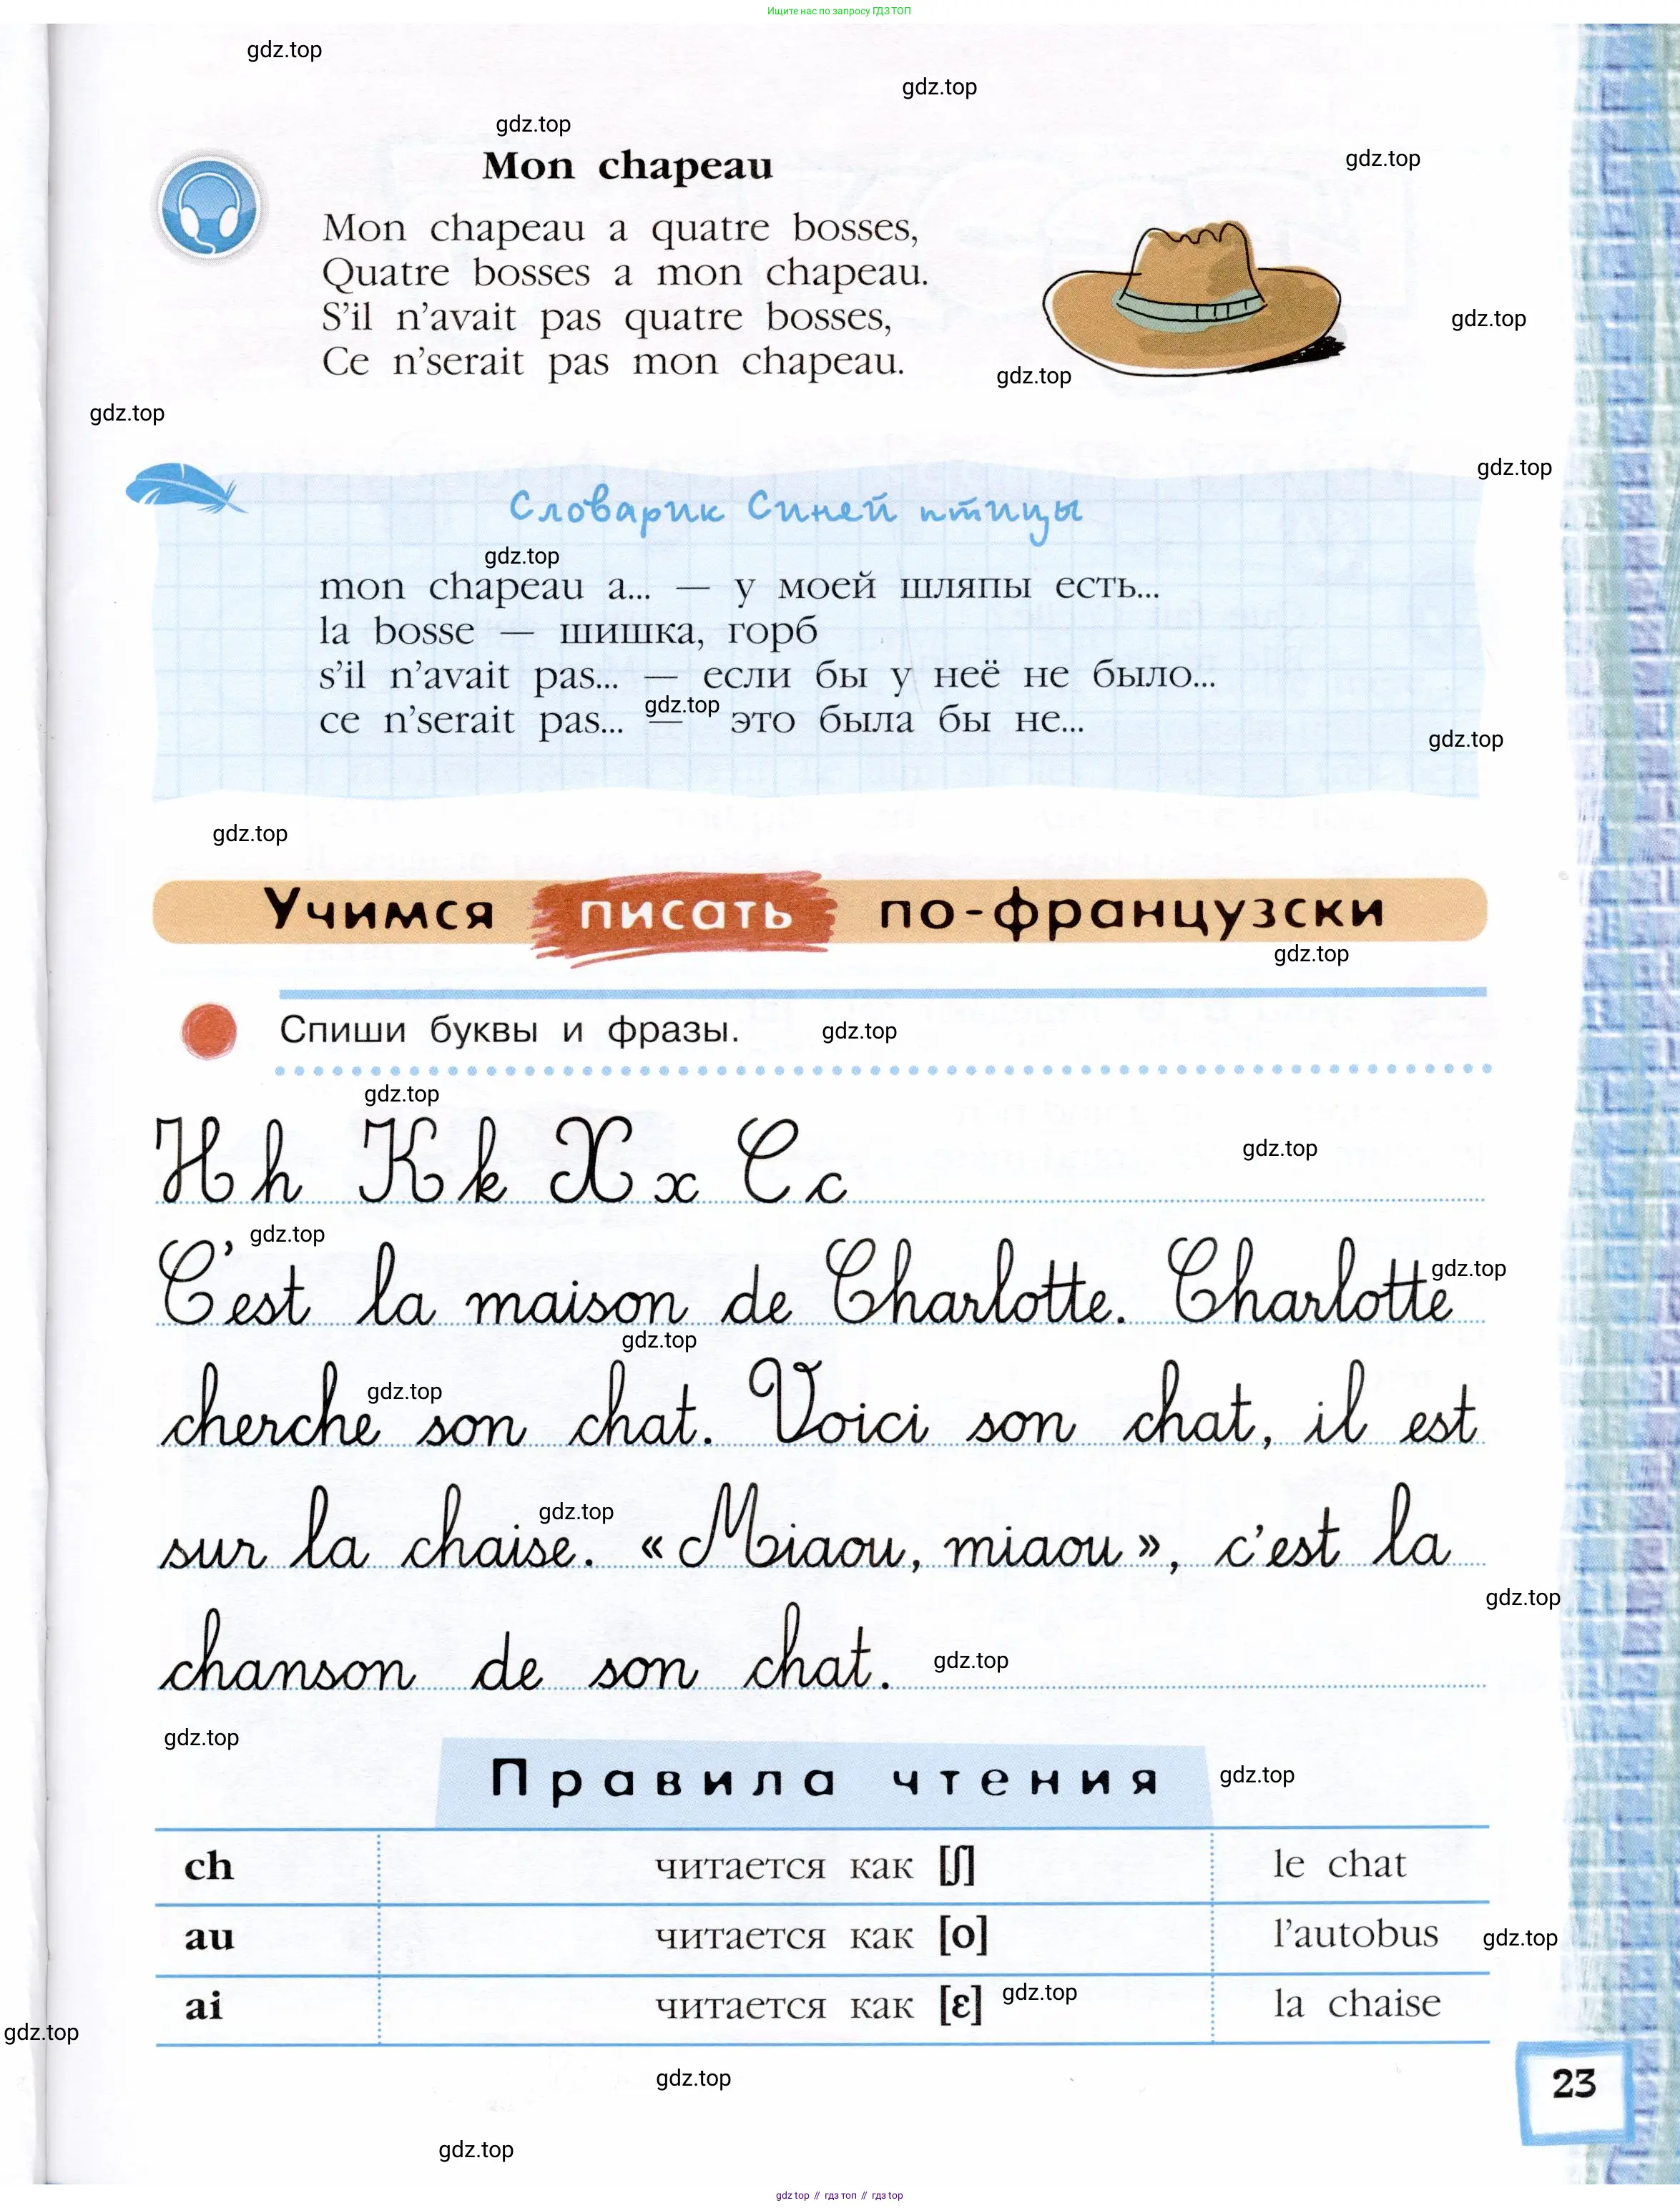 Ищите нас по запросу ГДЗ ТОП
gdz.top
gdz.top
gdz.top
Mon chapeau
gdz.top
Mon chapeau a quatre bosses,
Quatre bosses a mon chapeau.
S'il n'avait pas quatre bosses,
gdz.top
Ce n'serait pas mon chapeau.
gdz.top
gdz.top
gdz.top
Словарик Синей птицы
gdz.top
mon chapeau a... — у моей шляпы есть...
la bosse — шишка, горб
s'il n'avait pas... — если бы у неё не было...
gdz.top
ce n'serait pas... — это была бы не...
gdz.top
gdz.top
Учимся писать по-французски
gdz.top
Спиши буквы и фразы.
gdz.top
gdz.top
H h K k X x C c
gdz.top
gdz.top
C'est la maison de Charlotte. Charlotte
gdz.top
gdz.top
cherche son chat. Voici son chat, il est
gdz.top
sur la chaise. « Miaou, miaou », c'est la
gdz.top
gdz.top
chanson de son chat.
gdz.top
gdz.top
Правила чтения
gdz.top
ch читается как [ʃ] le chat
au читается как [o] l'autobus
gdz.top
ai читается как [ɛ] la chaise
gdz.top
gdz.top
gdz.top
23
gdz.top
gdz top // гдз топ // гдз top